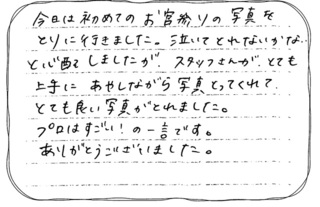 今日は初めてのお宮参りの写真を
とりに行きました。泣いてとれないかな…
と心配しましたが、スタッフさんが、とても
上手に あやしながら 写真とってくれて
とても良い写真がとれました。
プロはすごい!の一言です。
ありがとうございました。